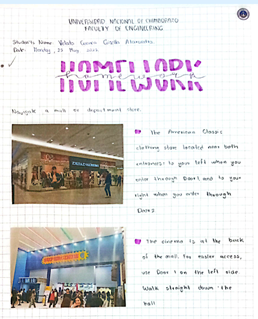 UNIVERSIDAD NACIONAL DE CHIMBORAZO
FACULTY OF ENGINEERING
Students Name:
Date: Monday, 22 May
HOMEWORK
homework
Navigate a mall or department store.
The American Classic
clothing store located near both
entrances: to your left when you
enter through Door 1 and to your
right when you enter through
Door 2
The cinema is at the back
of the mall. For easier access,
use Door 1 on the left side.
Walk straight down the
hall